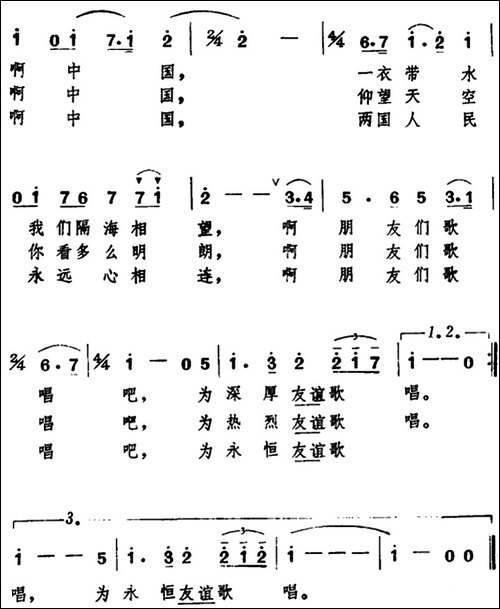 i 0 i 7·i 2 | 2/4 2 — | 4/4 6·7 i·2 i
啊 中 国， 一衣带水
啊 中 国， 仰望天空
啊 中 国， 两国人民
0 i 7 6 7 7 i | 2 — — ∨ 3·4 | 5 · 6 5 3·i
我们隔海相 望， 啊 朋 友们歌
你看多么明 朗， 啊 朋 友们歌
永远心相 连， 啊 朋 友们歌
1.2.
3
2/4 6·7 | 4/4 i — 0 5 | i· 3 2 2 i 7 | i — 0 :‖
唱 吧， 为深厚友谊歌 唱。
唱 吧， 为热烈友谊歌 唱。
唱 吧， 为永恒友谊歌
3.
3
i — — 5 | i· 3 2 2 i 2 | i — — — | i — 0 0 ‖
唱， 为永恒友谊歌 唱。